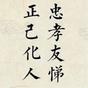 忠孝友悌
正己化人